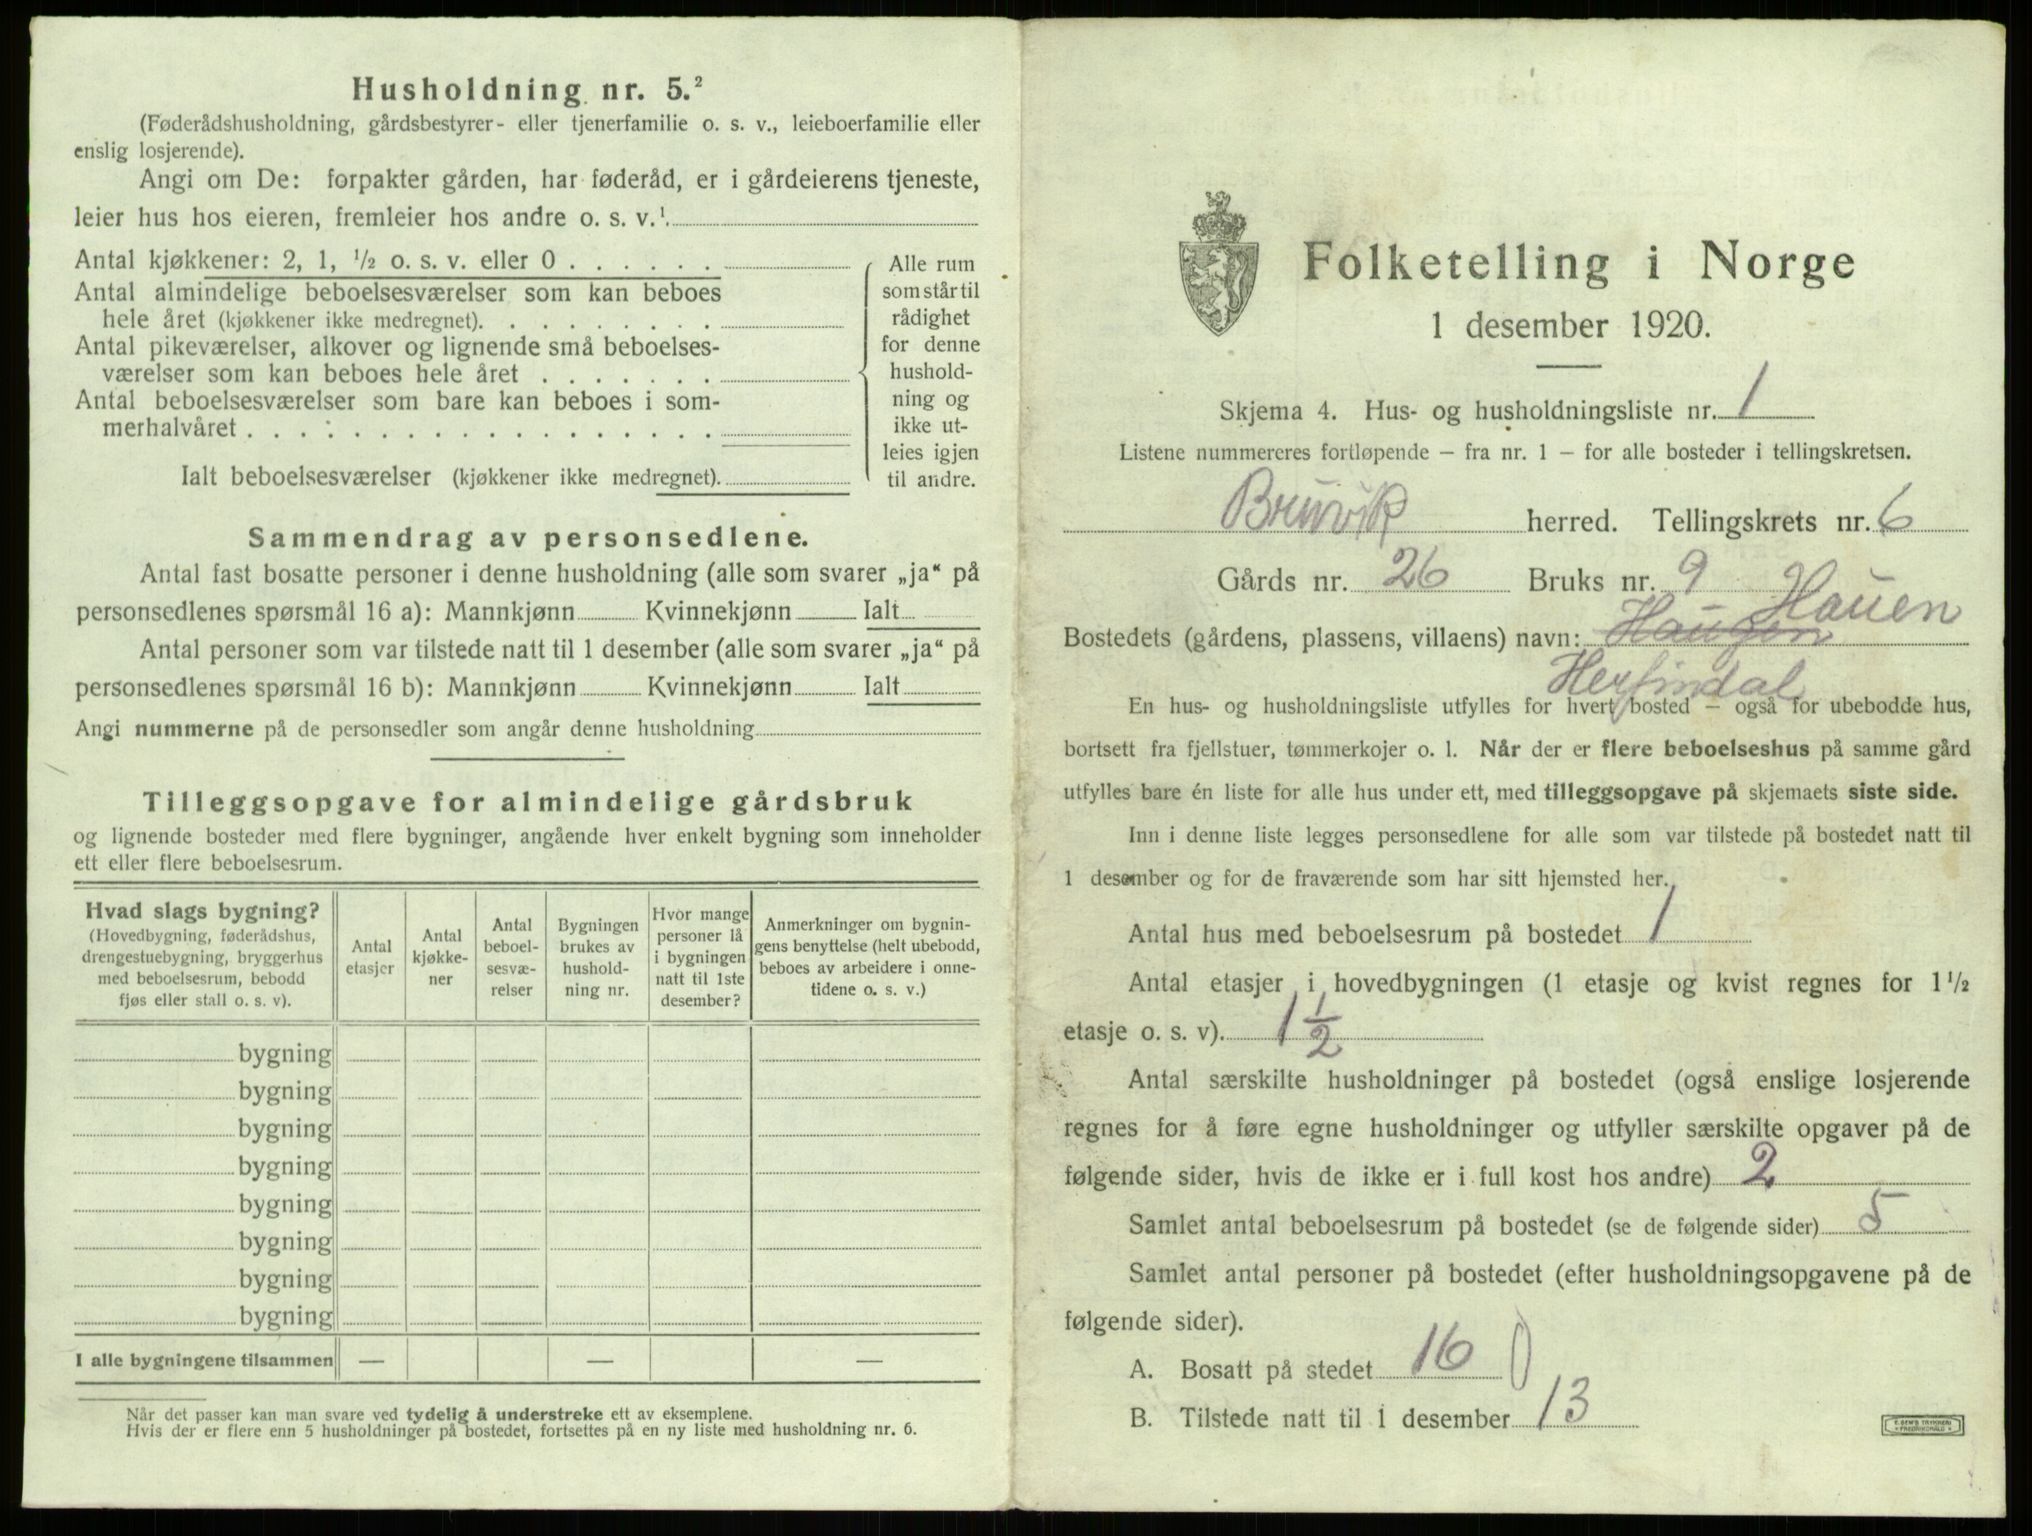 Husholdning nr. 5.²
(Føderådshusholdning, gårdsbestyrer- eller tjenerfamilie o. s. v., leieboerfamilie eller
enslig losjerende).
Angi om De: forpakter gården, har føderåd, er i gårdeierens tjeneste,
leier hus hos eieren, fremleier hos andre o. s. v.¹.
Antal kjøkkener: 2, 1, ½ o. s. v. eller 0 . . . . . .
Antal almindelige beboelsesværelser som kan beboes
hele året (kjøkkener ikke medregnet). . . . . . . . .
Antal pikeværelser, alkover og lignende små beboelses-
værelser som kan beboes hele året . . . . . . .
Antal beboelsesværelser som bare kan beboes i som-
merhalvåret . . . . . . . . . . . . . . . . . .
Ialt beboelsesværelser (kjøkkener ikke medregnet).
Alle rum
som står til
rådighet
for denne
hushold-
ning og
ikke ut-
leies igjen
til andre.
Sammendrag av personsedlene.
Antal fast bosatte personer i denne husholdning (alle som svarer „ja“ på
personsedlenes spørsmål 16 a): Mannkjønn Kvinnekjønn Ialt
Antal personer som var tilstede natt til 1 desember (alle som svarer „ja“ på
personsedlenes spørsmål 16 b): Mannkjønn Kvinnekjønn Ialt
Angi nummerne på de personsedler som angår denne husholdning
Tilleggsopgave for almindelige gårdsbruk
og lignende bosteder med flere bygninger, angående hver enkelt bygning som inneholder
ett eller flere beboelsesrum.
Hvad slags bygning?
(Hovedbygning, føderådshus,
drengestuebygning, bryggerhus
med beboelsesrum, bebodd
fjøs eller stall o. s. v).
Antal
etasjer
Antal
kjøkke-
ner
Antal
beboel-
sesvæ-
relser
Bygningen
brukes av
hushold-
ning nr.
Hvor mange
personer lå
i bygningen
natt til 1ste
desember?
Anmerkninger om bygnin-
gens benyttelse (helt ubebodd,
beboes av arbeidere i onne-
tidene o. s. v.)
bygning
bygning
bygning
bygning
bygning
bygning
bygning
bygning
I alle bygningene tilsammen — — —
Når det passer kan man svare ved tydelig å understreke ett av eksemplene.
Hvis der er flere enn 5 husholdninger på bostedet, fortsettes på en ny liste med husholdning nr. 6.
Folketelling i Norge
1 desember 1920.
Skjema 4. Hus- og husholdningsliste nr. 1
Listene nummereres fortløpende — fra nr. 1 — for alle bosteder i tellingskretsen.
Bruvik herred. Tellingskrets nr. 6
Gårds nr. 26 Bruks nr. 9
Hauen
Bostedets (gårdens, plassens, villaens) navn: Haugen
Herfindal
En hus- og husholdningsliste utfylles for hvert bosted — også for ubebodde hus,
bortsett fra fjellstuer, tømmerkojer o. l. Når der er flere beboelseshus på samme gård
utfylles bare én liste for alle hus under ett, med tilleggsopgave på skjemaets siste side.
Inn i denne liste legges personsedlene for alle som var tilstede på bostedet natt til
1 desember og for de fraværende som har sitt hjemsted her.
Antal hus med beboelsesrum på bostedet 1
Antal etasjer i hovedbygningen (1 etasje og kvist regnes for 1½
etasje o. s. v). 1½
Antal særskilte husholdninger på bostedet (også enslige losjerende
regnes for å føre egne husholdninger og utfyller særskilte opgaver på de
følgende sider, hvis de ikke er i full kost hos andre) 2
Samlet antal beboelsesrum på bostedet (se de følgende sider) 5
Samlet antal personer på bostedet (efter husholdningsopgavene på de
følgende sider).
A. Bosatt på stedet 16 0
B. Tilstede natt til 1 desember 13
E. SEM'S TRYKKERI
FREDRIKSHALD